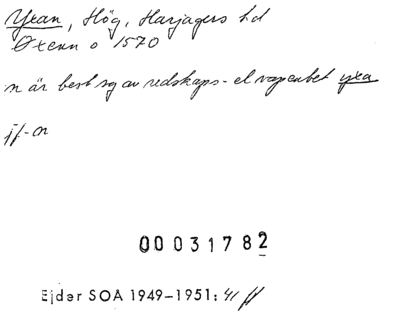 Yxan, Hög, Harjagers hd
Øxenn o 1570
n är best sg av redskaps- el vapenbet yxa
jf-n
00031782
Ejder SOA 1949-1951: 41 ff